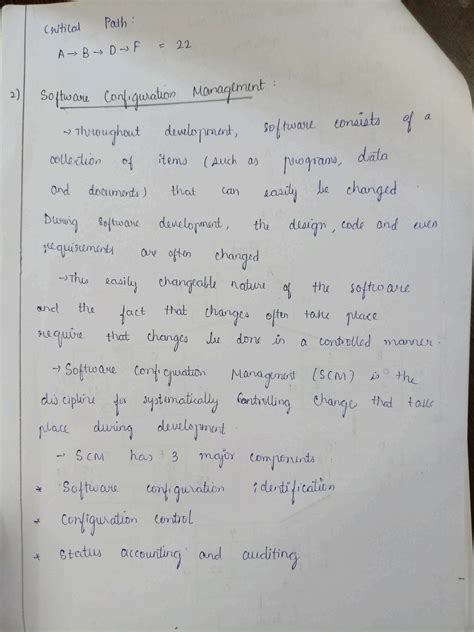 Critical Path:
A → B → D → F = 22
2) Software Configuration Management:
→ Throughout development, software consists of a
collection of items (such as programs, data
and documents) that can easily be changed.
During software development, the design, code and even
requirements are often changed
→ This easily changeable nature of the software
and the fact that changes often take place
require that changes be done in a controlled manner.
→ Software configuration Management (SCM) is the
discipline for systematically controlling change that take
place during development.
→ SCM has 3 major components
* Software configuration identification
* Configuration control
* Status accounting and auditing.